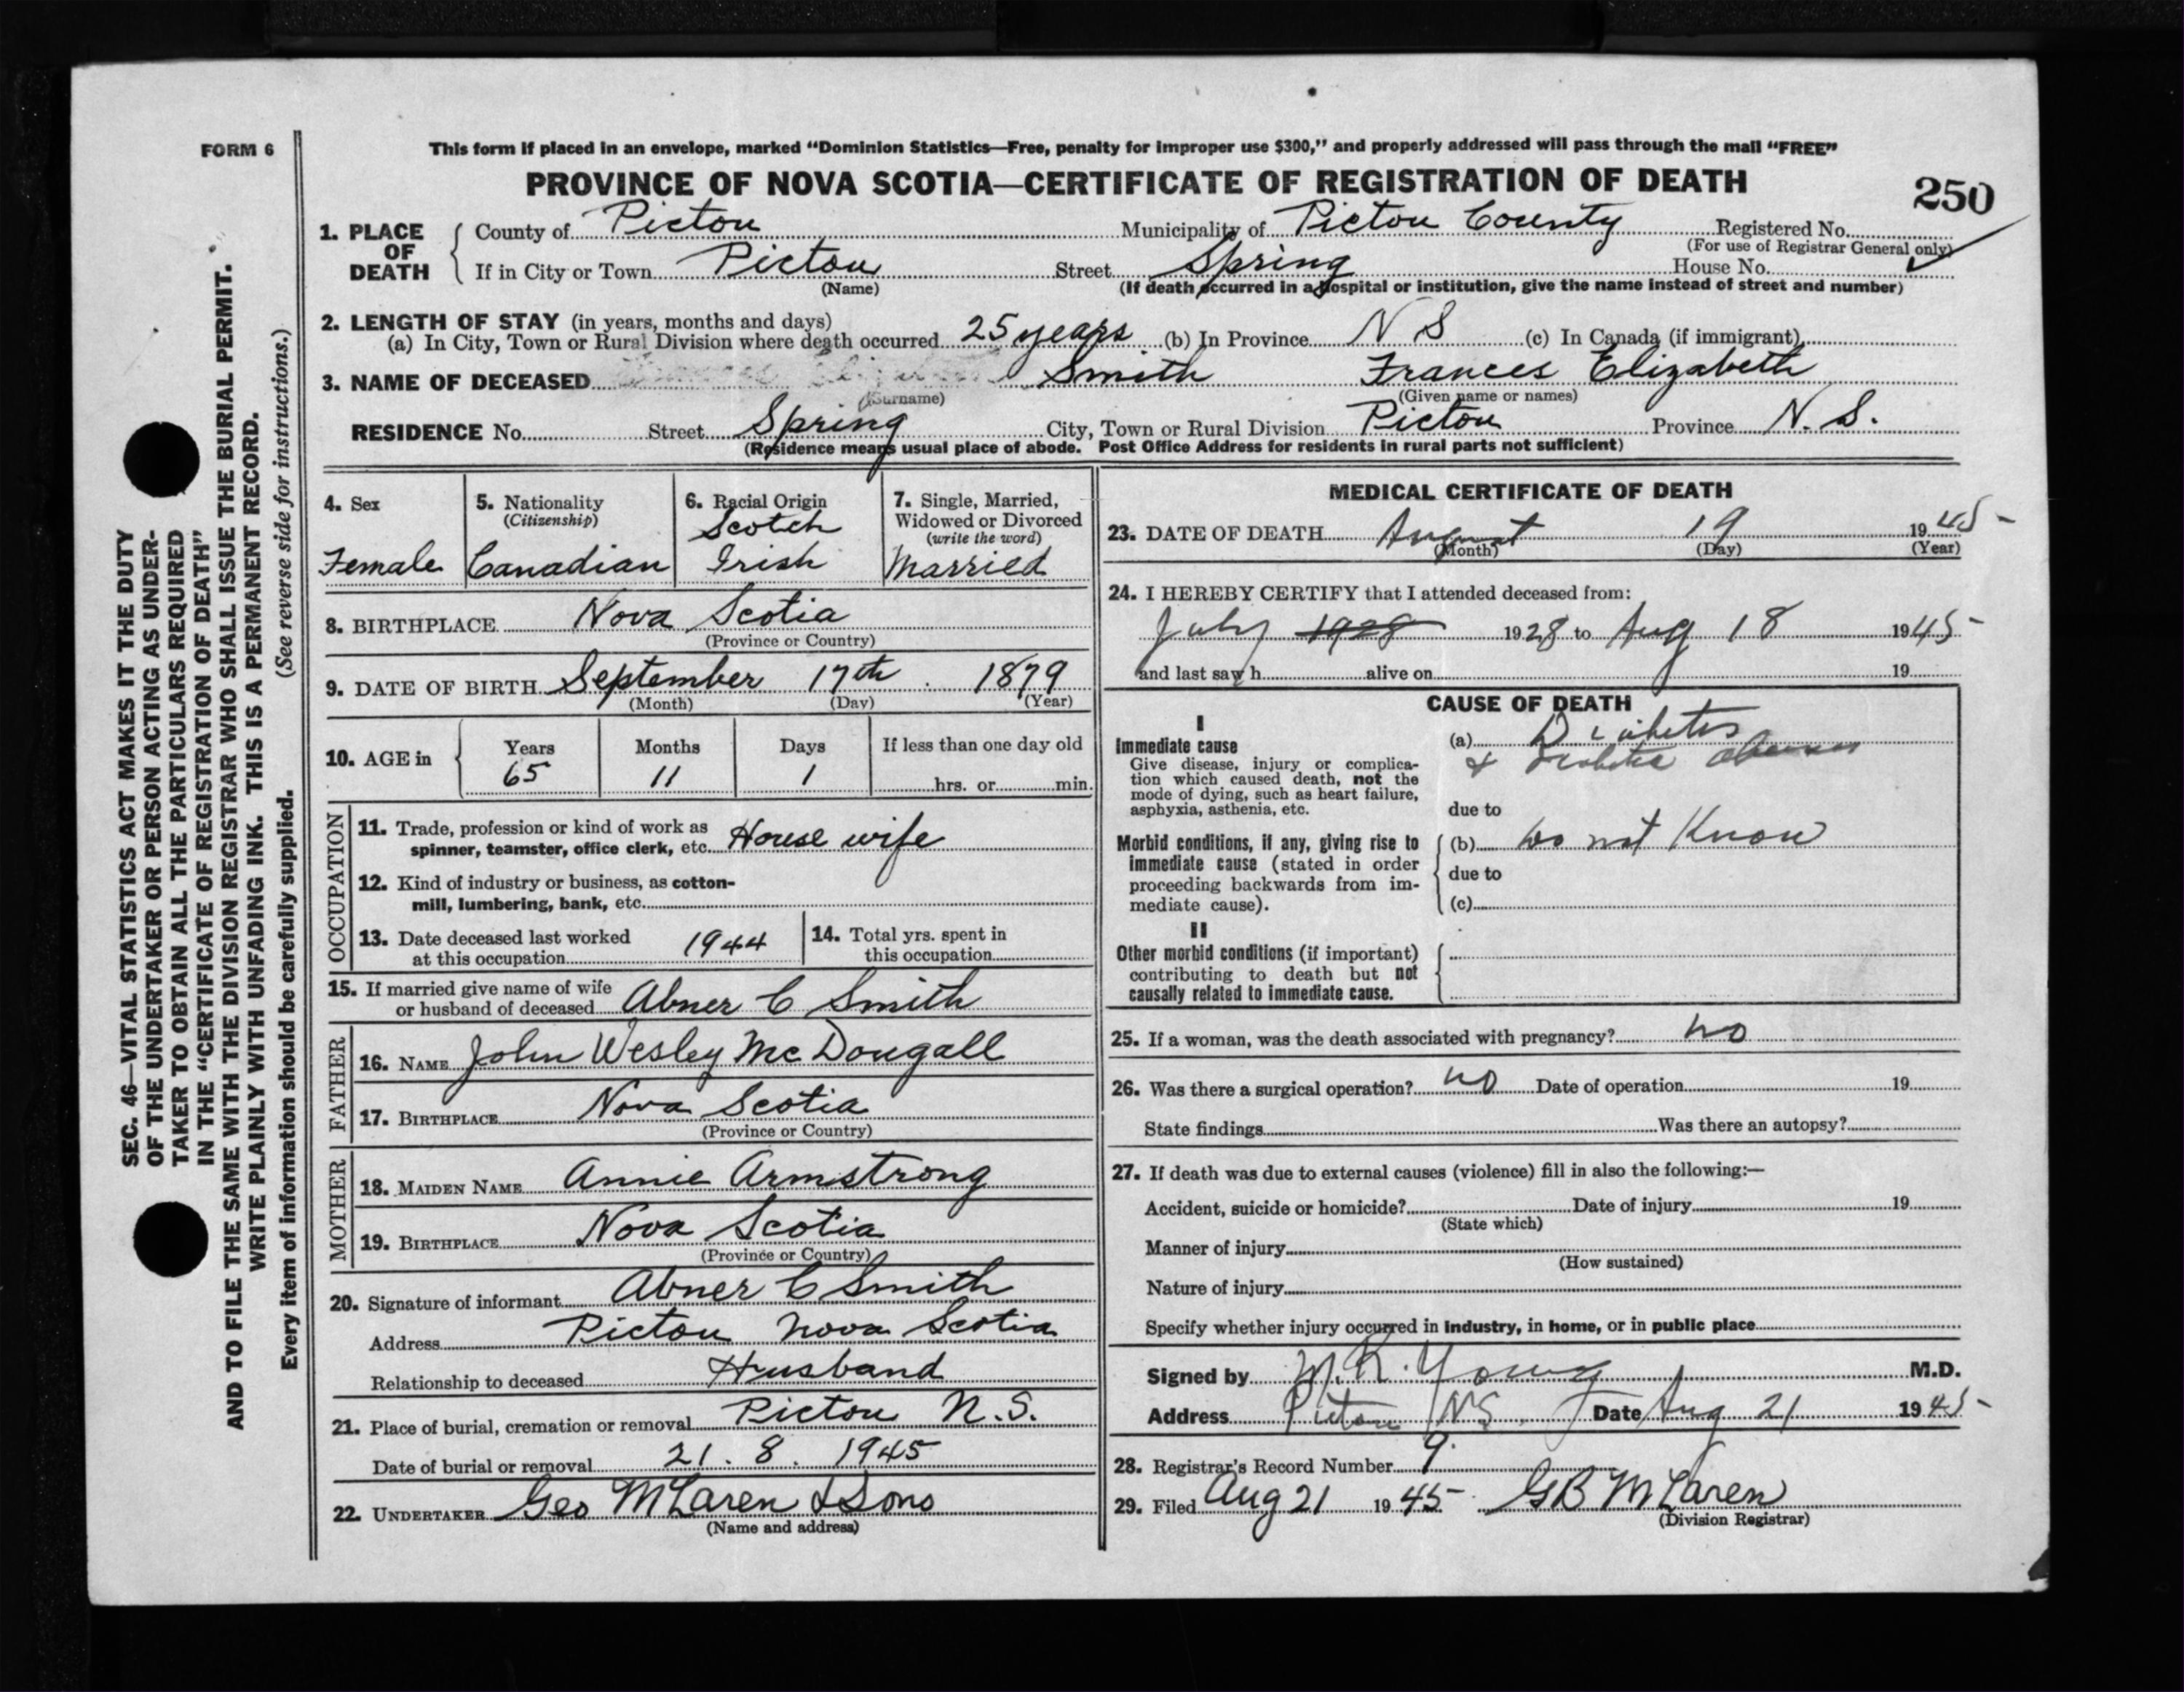 FORM 6
This form if placed in an envelope, marked "Dominion Statistics—Free, penalty for improper use $300," and properly addressed will pass through the mail "FREE"
PROVINCE OF NOVA SCOTIA—CERTIFICATE OF REGISTRATION OF DEATH
250
1. PLACE OF DEATH
County of Pictou Municipality of Pictou County Registered No.
(For use of Registrar General only)
If in City or Town Pictou Street Spring House No.
(Name) (If death occurred in a hospital or institution, give the name instead of street and number)
2. LENGTH OF STAY (in years, months and days)
(a) In City, Town or Rural Division where death occurred 25 years (b) In Province N S (c) In Canada (if immigrant)
3. NAME OF DECEASED Smith Frances Elizabeth
(Surname) (Given name or names)
RESIDENCE No. Street Spring City, Town or Rural Division Pictou Province N. S.
(Residence means usual place of abode. Post Office Address for residents in rural parts not sufficient)
SEC. 46—VITAL STATISTICS ACT MAKES IT THE DUTY
OF THE UNDERTAKER OR PERSON ACTING AS UNDER-
TAKER TO OBTAIN ALL THE PARTICULARS REQUIRED
IN THE "CERTIFICATE OF REGISTRATION OF DEATH"
AND TO FILE THE SAME WITH THE DIVISION REGISTRAR WHO SHALL ISSUE THE BURIAL PERMIT.
WRITE PLAINLY WITH UNFADING INK. THIS IS A PERMANENT RECORD.
Every item of information should be carefully supplied. (See reverse side for instructions.)
4. Sex
Female
5. Nationality
(Citizenship)
Canadian
6. Racial Origin
Scotch
Irish
7. Single, Married,
Widowed or Divorced
(write the word)
Married
8. BIRTHPLACE Nova Scotia
(Province or Country)
9. DATE OF BIRTH September 17th 1879
(Month) (Day) (Year)
10. AGE in
Years Months Days If less than one day old
65 11 1 hrs. or min.
OCCUPATION
11. Trade, profession or kind of work as
spinner, teamster, office clerk, etc. House wife
12. Kind of industry or business, as cotton-
mill, lumbering, bank, etc.
13. Date deceased last worked
at this occupation 1944
14. Total yrs. spent in
this occupation
15. If married give name of wife
or husband of deceased Abner C Smith
FATHER
16. NAME John Wesley Mc Dougall
17. BIRTHPLACE Nova Scotia
(Province or Country)
MOTHER
18. MAIDEN NAME Annie Armstrong
19. BIRTHPLACE Nova Scotia
(Province or Country)
20. Signature of informant Abner C Smith
Address Pictou Nova Scotia
Relationship to deceased Husband
21. Place of burial, cremation or removal Pictou N.S.
Date of burial or removal 21. 8. 1945
22. UNDERTAKER Geo McLaren & Sons
(Name and address)
MEDICAL CERTIFICATE OF DEATH
23. DATE OF DEATH August 19 1945
(Month) (Day) (Year)
24. I HEREBY CERTIFY that I attended deceased from:
July 1928 1928 to Aug 18 1945
and last saw h alive on 19
CAUSE OF DEATH
I
Immediate cause
Give disease, injury or complica-
tion which caused death, not the
mode of dying, such as heart failure,
asphyxia, asthenia, etc.
(a) Diabetes
& diabetic
due to
Morbid conditions, if any, giving rise to
immediate cause (stated in order
proceeding backwards from im-
mediate cause).
(b) Do not Know
due to
(c)
II
Other morbid conditions (if important)
contributing to death but not
causally related to immediate cause.
25. If a woman, was the death associated with pregnancy? no
26. Was there a surgical operation? no Date of operation 19
State findings Was there an autopsy?
27. If death was due to external causes (violence) fill in also the following:—
Accident, suicide or homicide? Date of injury 19
(State which)
Manner of injury
(How sustained)
Nature of injury
Specify whether injury occurred in industry, in home, or in public place
Signed by M.R. Young M.D.
Address Pictou N.S. Date Aug 21 1945
28. Registrar's Record Number 9.
29. Filed Aug 21 1945 G B McLaren
(Division Registrar)